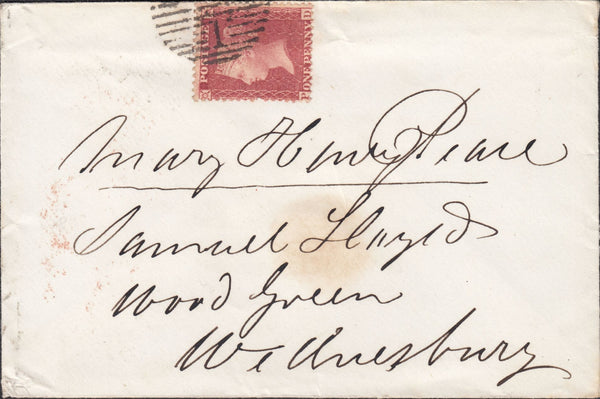 1
POSTAGE
ONE PENNY
D
Mary Pease
Samuel Lloyd
Wood Green
Wednesbury